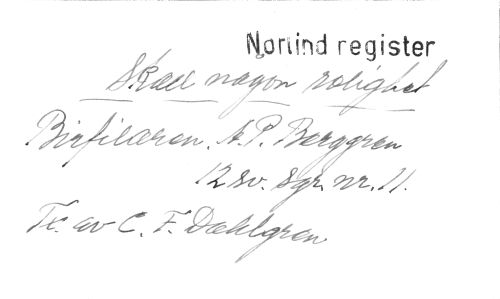 Norlind register
Skall någon rolighet
Birfilaren. A. P. Berggren
12 sv. sgr. nr. 11.
Tx. av C. F. Dahlgren